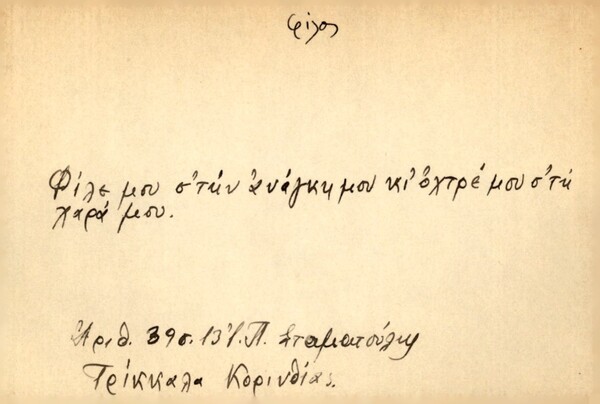 φίλος
Φίλε μου σ' τὴν ἀνάγκη μου κι' ὀχτρέ μου σ' τὴ
χαρά μου.
Ἀριθ. 39 σ. 13 Π. Σταματούλη
Τρίκκαλα Κορινθίας.